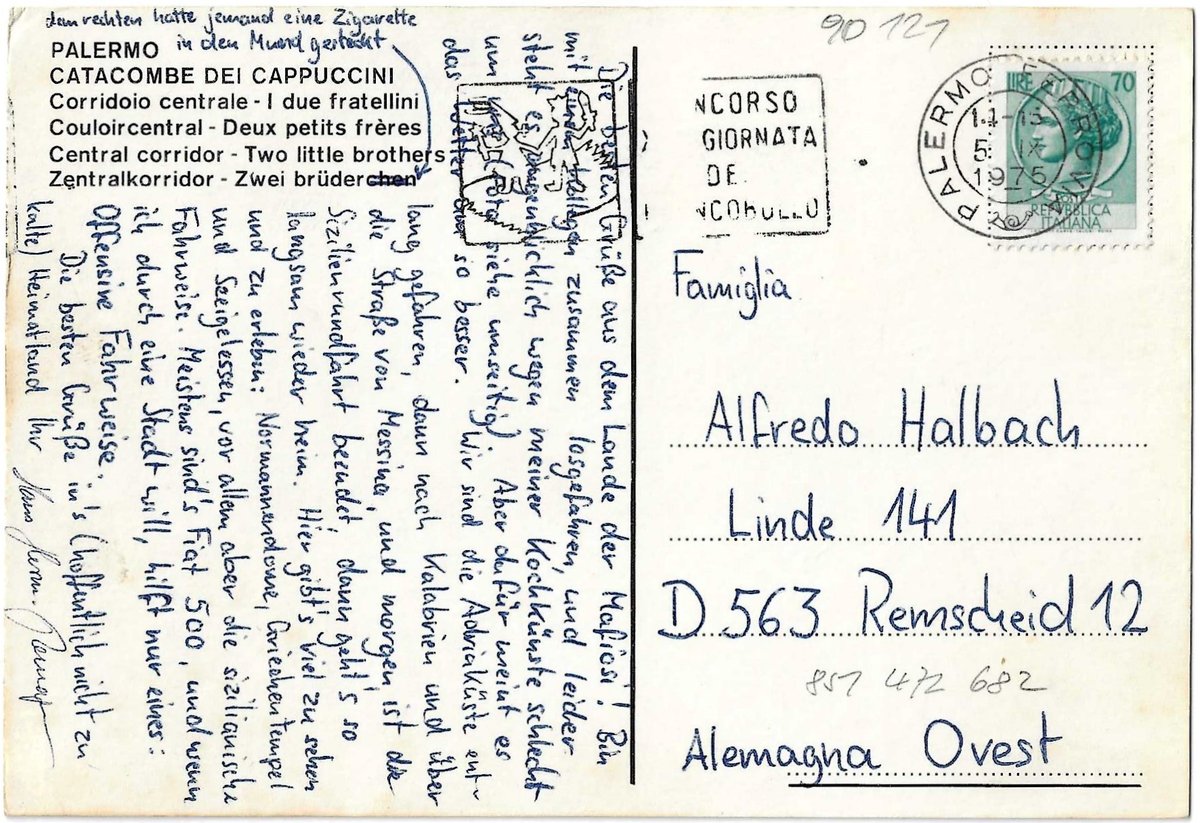 dem rechten hatte jemand eine Zigarette
in den Mund gesteckt
PALERMO
CATACOMBE DEI CAPPUCCINI
Corridoio centrale - I due fratellini
Couloircentral - Deux petits frères
Central corridor - Two little brothers
Zentralkorridor - Zwei brüderchen
Die besten Grüße aus dem Lande der Mafiosi! Bin
mit zusammen losgefahren, und leider
steht es augenblicklich wegen meiner Kochkünste schlecht
um (Foto siehe umseitig). Aber dafür meint es
das Wetter um so besser. Wir sind die Adriaküste ent-
lang gefahren, dann nach Kalabrien und über
die Straße von Messina, und morgen ist die
Sizilienrundfahrt beendet, dann geht's so
langsam wieder heim. Hier gibt's viel zu sehen
und zu erleben: Normannendome, Griechentempel
und Seeigelessen, vor allem aber die sizilianische
Fahrweise. Meistens sind's Fiat 500, und wenn
ich durch eine Stadt will, hilft nur eines:
Offensive Fahrweise.
Die besten Grüße in's (hoffentlich nicht zu
kalte) Heimatland Ihr
90 121
NCORSO
GIORNATA
DE
NCOBOLLO
PALERMO FERROVIA
14-15
5 IX
1975
LIRE 70
POSTE
REPUBBLICA
ITALIANA
Famiglia
Alfredo Halbach
Linde 141
D 563 Remscheid 12
851 472 682
Alemagna Ovest